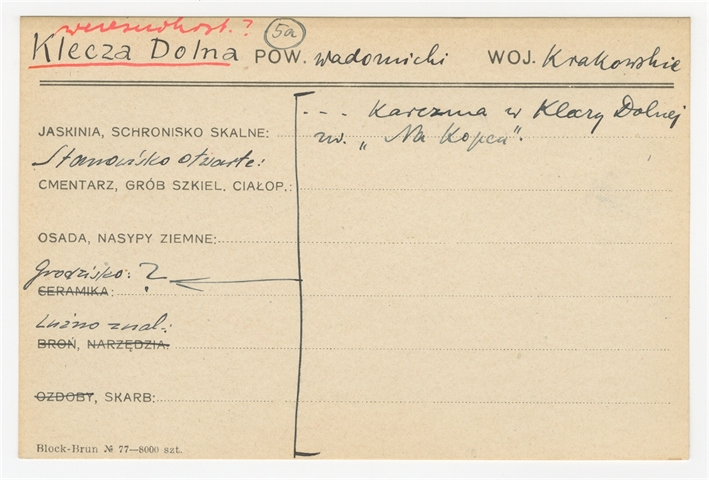 wczesnohist.?
5a
Klecza Dolna POW. wadowicki WOJ. Krakowskie
--- Karczma w Kleczy Dolnej
zw. „Na Kopcu".
JASKINIA, SCHRONISKO SKALNE:
Stanowisko otwarte:
CMENTARZ, GRÓB SZKIEL. CIAŁOP.:
OSADA, NASYPY ZIEMNE:
Grodzisko: ?
CERAMIKA:
Luźno znal.:
BROŃ, NARZĘDZIA.
OZDOBY, SKARB:
Block-Brun № 77—8000 szt.